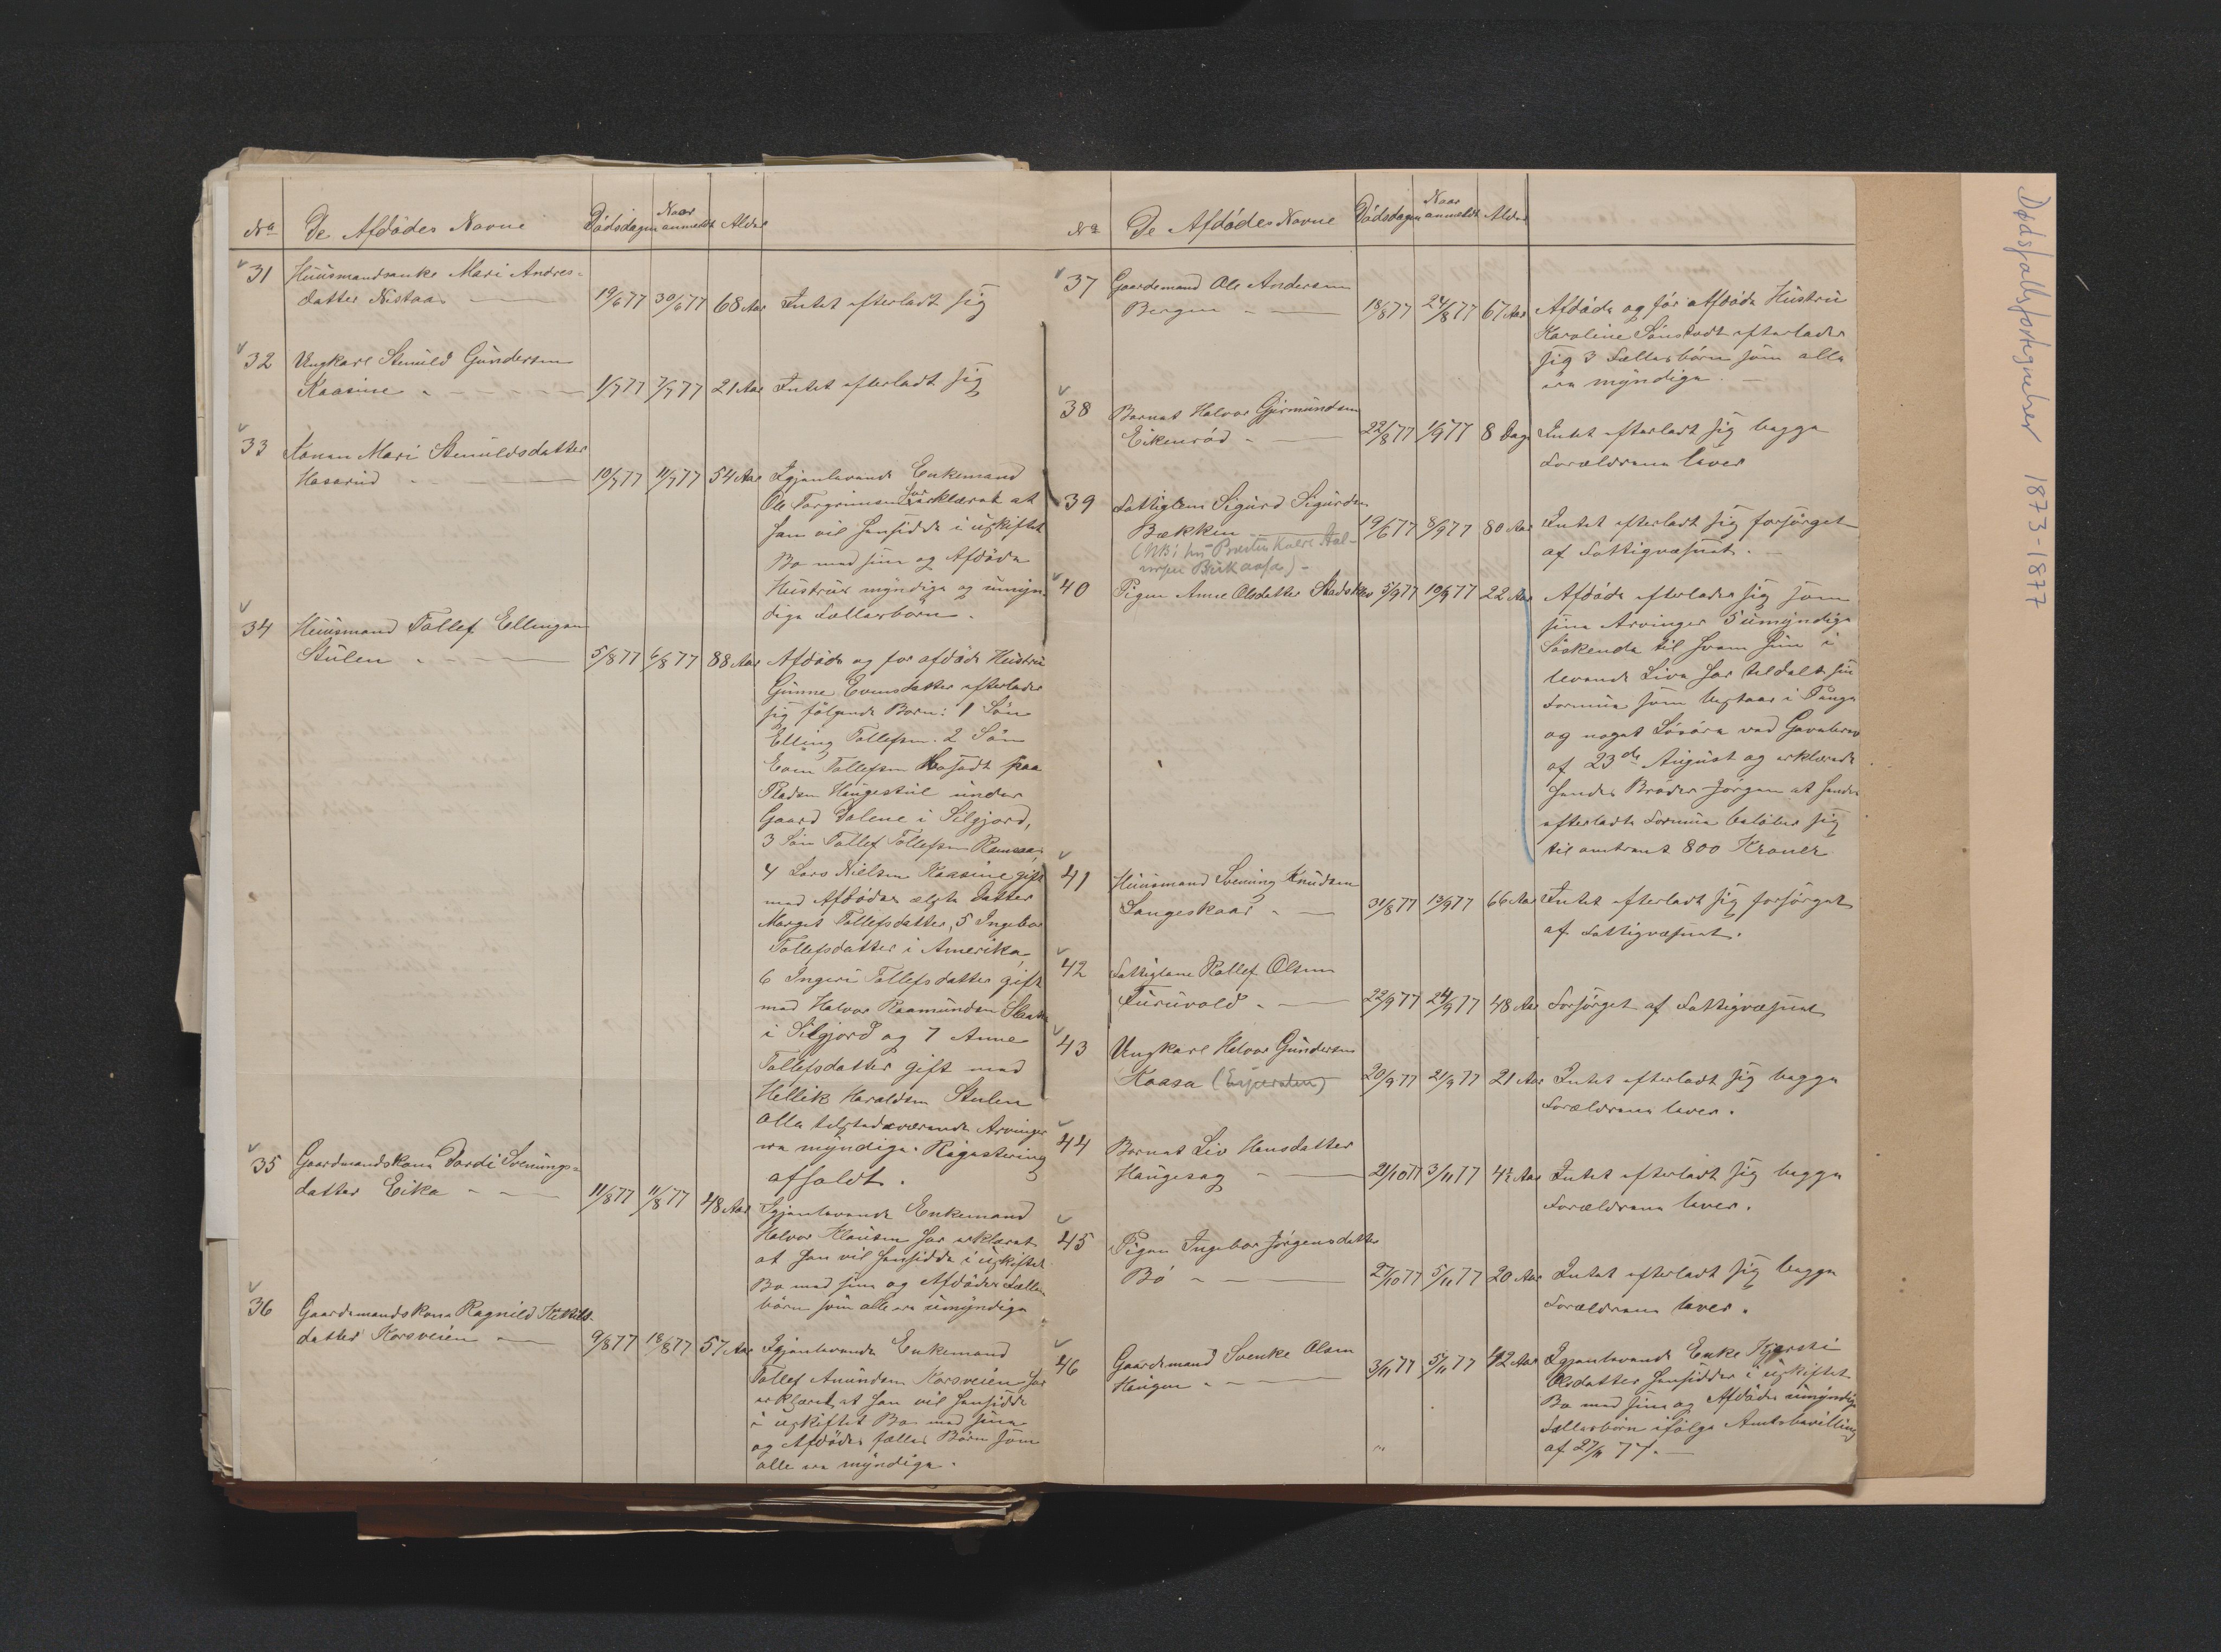 No De Afdödes Navne Dödsdagen Naar anmeldt Alder
31 Huusmandsenke Mari Andres-
datter Nistaas 19/6 77 30/6 77 68 Aar Intet efterladt sig
32 Ungkarl Stenuld Gundersen
Kaasine 1/7 77 7/7 77 21 Aar Intet efterladt sig
33 Konen Mari Stenuldsdatter
Haserud 10/7 77 11/7 77 54 Aar Igjenlevende Enkemand
Ole Torgrimsen har erklæret at
han vil hensidde i uskiftet
Bo med sine og Afdöde
Hustrus myndige og umyn-
dige Fællesbörn.
34 Huusmand Tollef Ellingsen
Stulen 5/8 77 6/8 77 88 Aar Afdöde og för afdöde Hustru
Gunne Evensdatter efterlader
sig fölgende Börn: 1 Sön
Elling Tollefsen. 2 Sön
Even Tollefsen Bosadt paa
Pladsen Haugestul under
Gaard Dalene i Silgjord,
3 Sön Tollef Tollefsen
4 Lars Nielsen Kaasine gift
med Afdödes ægte Datter
Marget Tollefsdatter, 5 Ingebor
Tollefsdatter i Amerika,
6 Ingeri Tollefsdatter gift
med Halvor Raamundsen
i Silgjord og 7 Anne
Tollefsdatter gift med
Hellik Haraldsen Stulen
alle tilstedeværende Arvinger
ere myndige. Registrering
afholdt.
35 Gaardmandskone Dordi Svenungs-
datter Eika 11/8 77 11/8 77 48 Aar Igjenlevende Enkemand
Halvor Klausen har erklæret
at han vil hensidde i uskiftet
Bo med sine og Afdödes Fælles
börn som alle ere umyndige
36 Gaardmandskone Ragnild Kittils-
datter Korsveien 9/8 77 18/8 77 57 Aar Igjenlevende Enkemand
Tollef Amundsen Korsveien har
erklæret at han vil hensidde
i uskiftet Bo med sine
og Afdödes fælles Börn som
alle ere myndige.
No De Afdödes Navne Dödsdagen Naar anmeldt Alder
37 Gaardemand Ole Andersen
Bergen 18/8 77 24/8 77 67 Aar Afdöde og för afdöde Hustru
Karoline efterlader
sig 3 Fællesbörn som alle
ere myndige.
38 Barnet Halvor Gjermundsen
Eikenröd 22/8 77 1/9 77 8 Dage Intet efterladt sig begge
Forældrene lever
39 Fattiglem Sigurd Sigurdsen
Bækken 19/6 77 8/9 77 80 Aar Intet efterladt sig forsörget
af Fattigvæsnet.
40 Pigen Anne Olsdatter 5/9 77 10/9 77 22 Aar Afdöde efterlader sig som
sine Arvinger 5 umyndige
Söskende til hvem hun i
levende Live har tildelt sin
Formue som bestaar i Penge
og noget Lösöre ved Gavebrev
af 23de August og erklærede
hendes Broder Jörgen at hendes
efterladte Formue belöber sig
til omtrent 800 Kroner
41 Huusmand Svenung Knudsen
Langeskaas 31/8 77 13/9 77 66 Aar Intet efterladt sig forsörget
af Fattigvæsnet.
42 Fattiglem Rollef Olsen
Furuvold 22/9 77 24/9 77 48 Aar Forsörget af Fattigvæsnet
43 Ungkarl Halvor Gundersen
Kaasa 20/9 77 21/9 77 21 Aar Intet efterladt sig begge
Forældrene lever.
44 Barnet Liv Hansdatter
Haugesag 21/10 77 3/11 77 4½ Aar Intet efterladt sig begge
Forældrene lever.
45 Pigen Ingebor Jörgensdatter
Bö 27/10 77 5/11 77 20 Aar Intet efterladt sig begge
Forældrene lever.
46 Gaardemand Svenke Olsen
Haugen 3/11 77 5/11 77 42 Aar Igjenlevende Enke Kjersti
Olsdatter hensidder i uskiftet
Bo med sine og Afdödes umyndige
Fællesbörn ifölge Amtsbevilling
af 27/11 77.
Dødsfallsfortegnelser 1873-1877